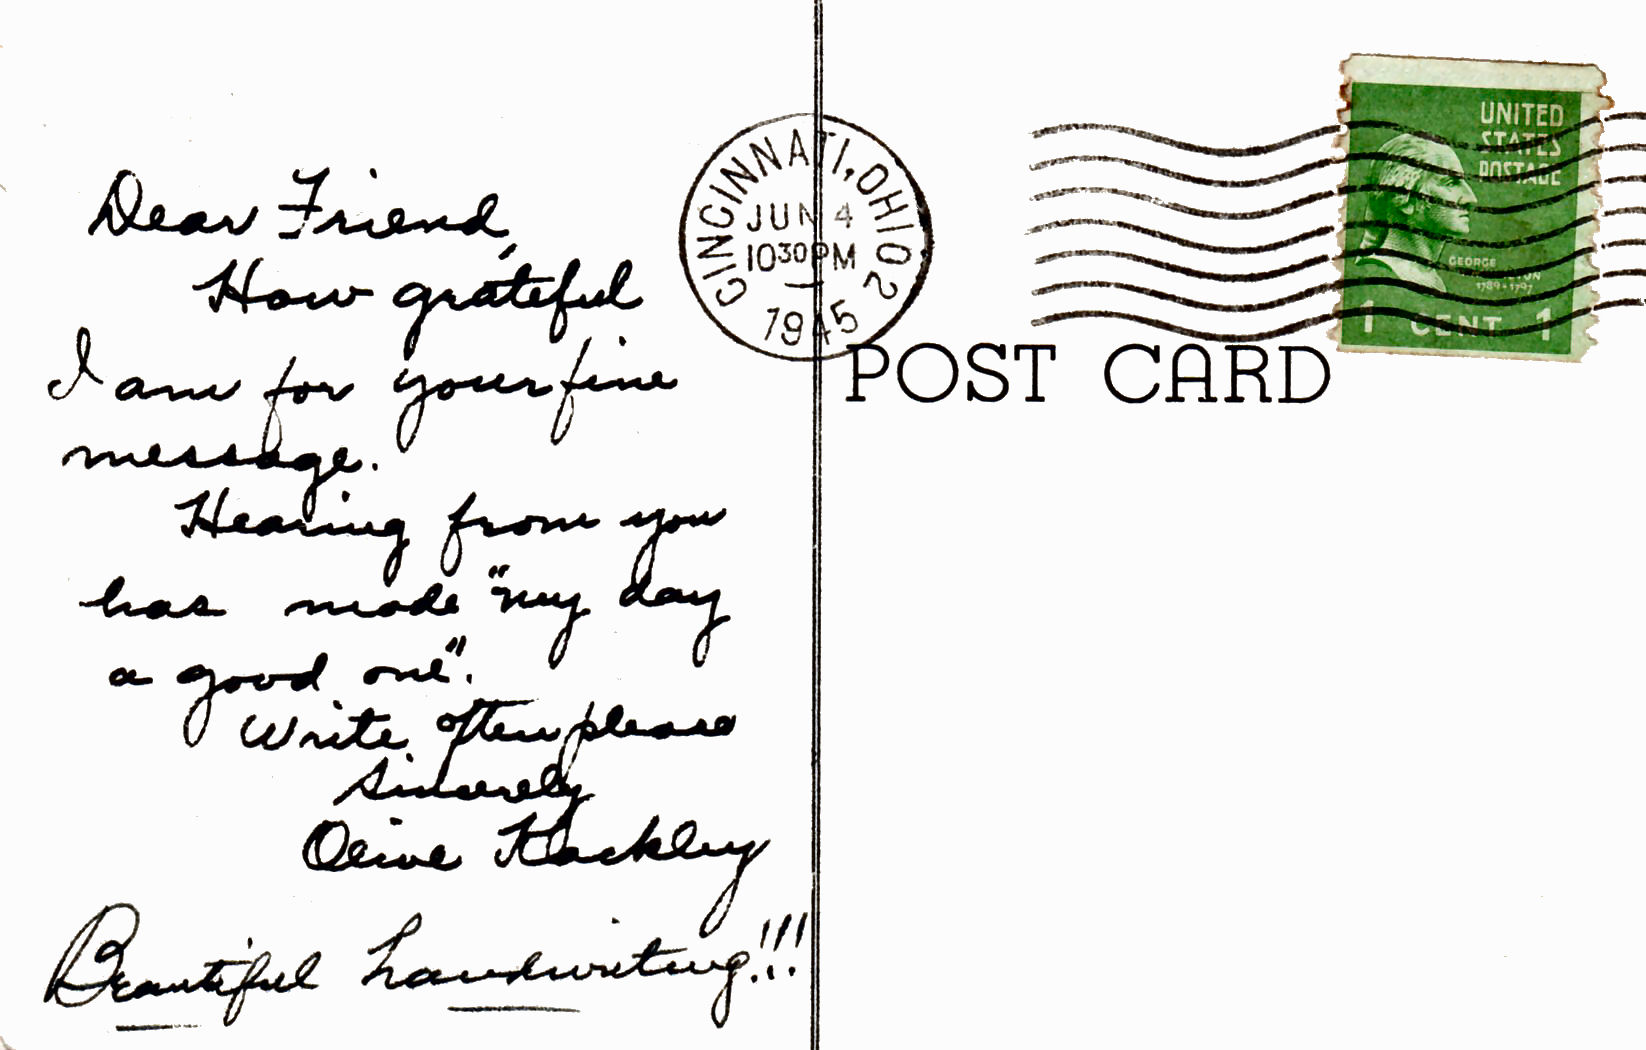 Dear Friend,
How grateful
I am for your fine
message.
Hearing from you
has made "my day
a good one".
Write often please
Sincerely
Olive Hackley
Beautiful handwriting!!!
CINCINNATI, OHIO 2
JUN 4
10 30 PM
1945
POST CARD
UNITED
STATES
POSTAGE
GEORGE
1789-1797
1 CENT 1